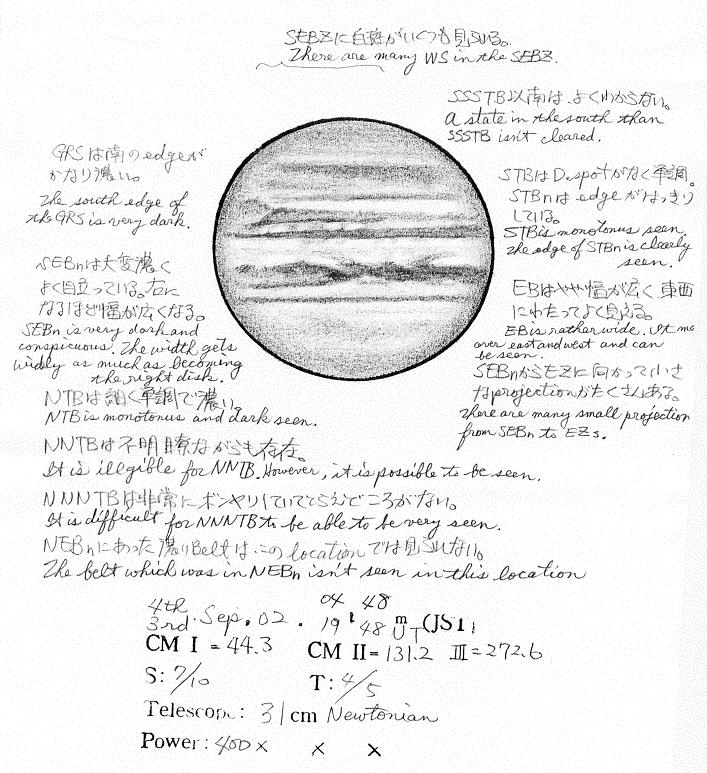 SEBZに白斑がいくつも見られる。
There are many WS in the SEBZ.
SSSTB以南は、よくわからない。
A state in the south than
SSSTB isn't cleared.
GRSは南のedgeが
かなり濃い。
The south edge of
the GRS is very dark.
STBはD.spotがなく単調。
STBnはedgeがはっきり
している。
STB is monotonus seen.
The edge of STBn is clearly
seen.
SEBnは大変濃く
よく目立っている。右に
なるほど幅が広くなる。
SEBn is very dark and
conspicuous. The width gets
widely as much as becoming
the right dish.
EBはやや幅が広く東西
にわたってよく見える。
EB is rather wide. It me
over east and west and can
be seen.
SEBnからEZに向かって小さ
なprojectionがたくさんある。
There are many small projection
from SEBn to EZs.
NTBは細く単調で濃い。
NTB is monotonus and dark seen.
NNTBは不明瞭ながらも存在。
It is illgible for NNTB. However, it is possible to be seen.
NNNTBは非常にボンヤリしていてとらえどころがない。
It is difficult for NNNTB to be able to be very seen.
NEBnにあった濃いBeltは、この locationでは見られない。
The belt which was in NEBn isn't seen in this location
4th 04 48
3rd. Sep. 02. 19 48 m UT (JST)
CM I = 44.3 CM II = 131.2 III = 272.6
S: 7/10 T: 4/5
Telescope: 31cm Newtonian
Power: 400× × ×